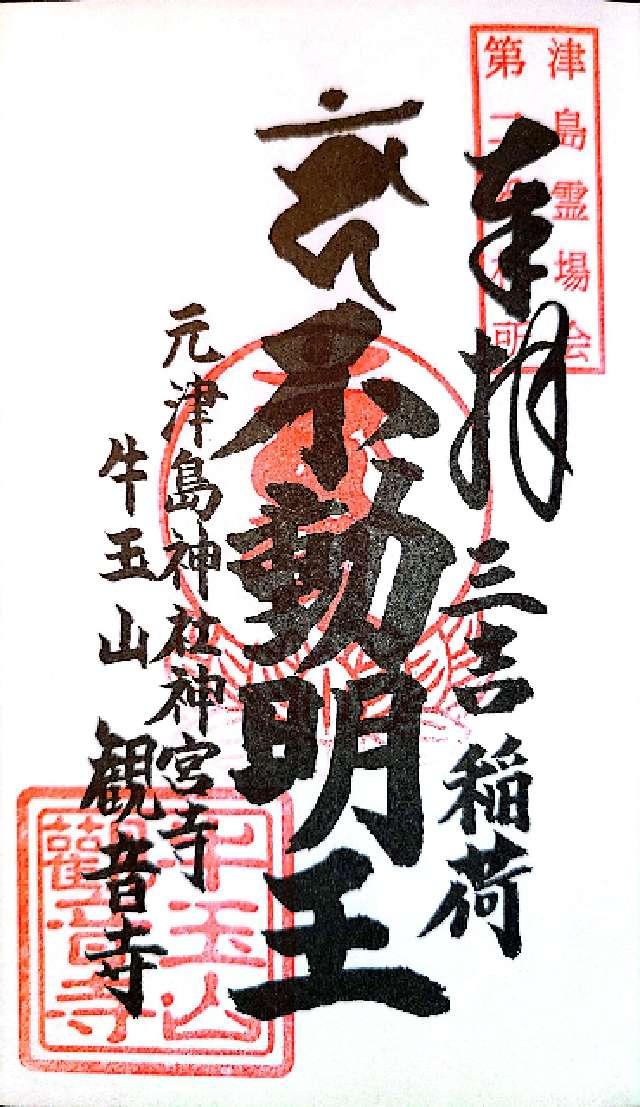 津島霊場会
第
奉拝
三吉稲荷
不動明王
元津島神社神宮寺
牛玉山
観音寺
牛玉山
觀音寺